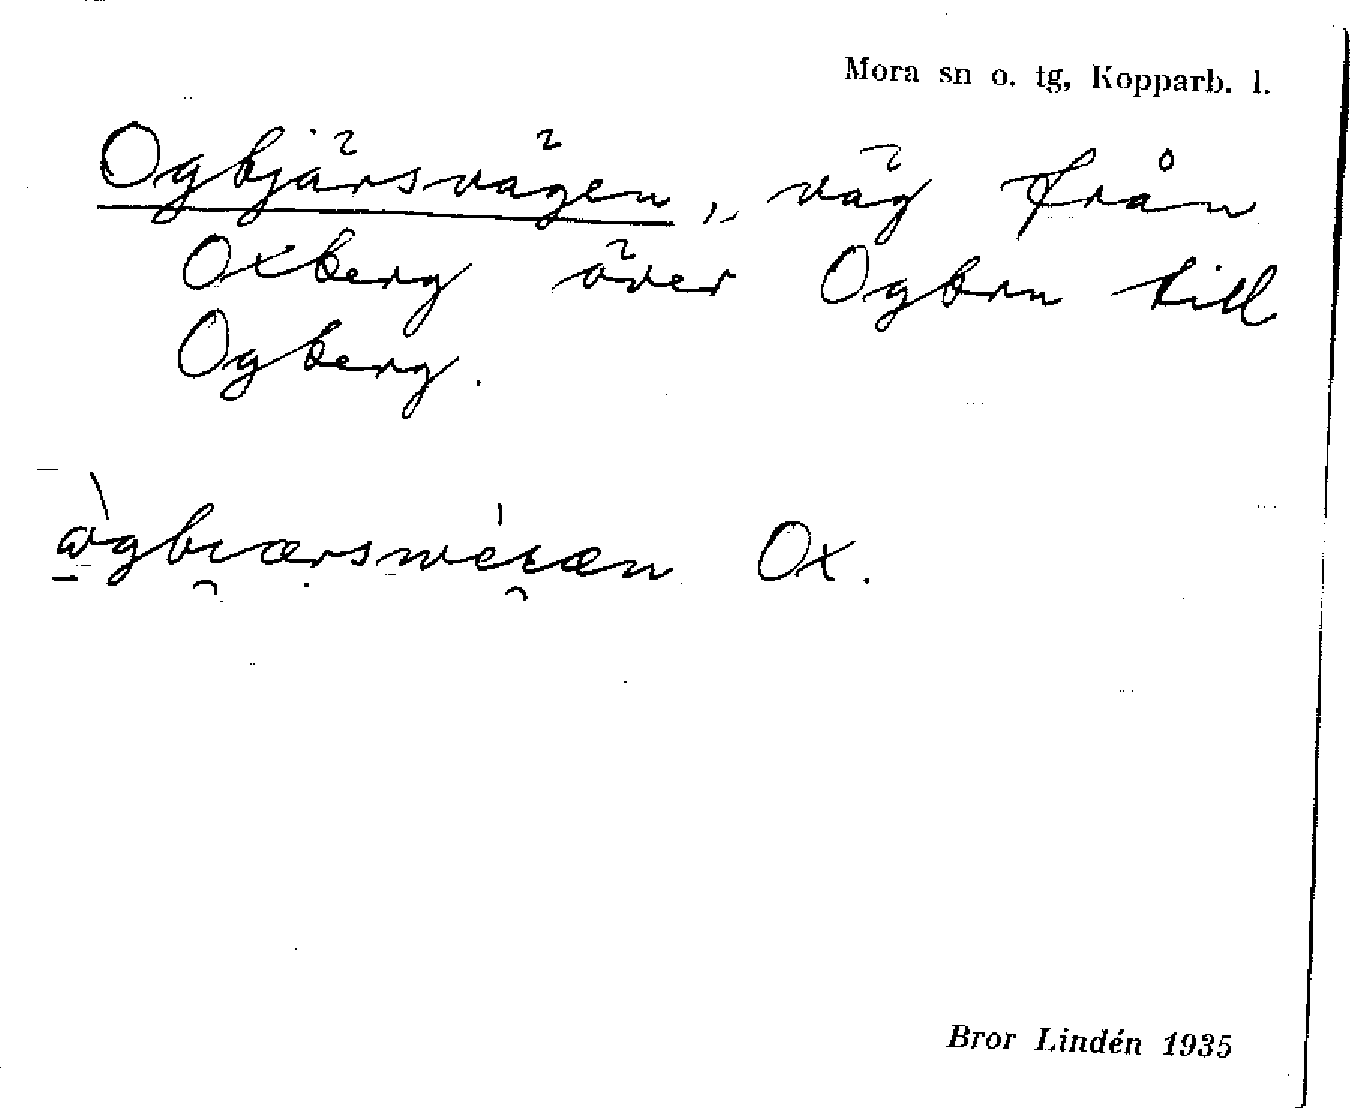 Mora sn o. tg, Kopparb. l.
Ogbjärsvägen, väg från
Oxberg över Ogbru till
Ogberg.
Ox.
Bror Lindén 1935